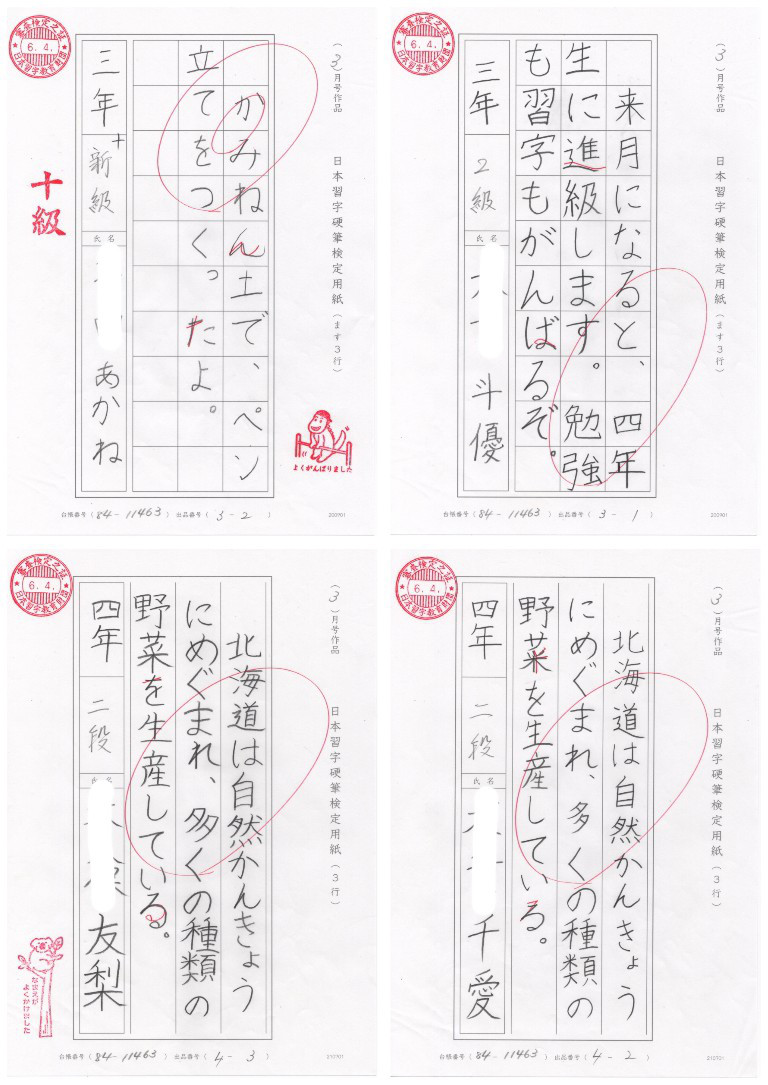 審査検定之証
6.4.
日本習字教育財団
(3)月号作品
日本習字硬筆検定用紙(ます3行)
かみねん土で、ペン
立てをつくったよ。
三年
新+級
氏名
あかね
十級
よくがんばりました
台帳番号(84-11463) 出品番号(3-2)
200901
審査検定之証
6.4.
日本習字教育財団
(3)月号作品
日本習字硬筆検定用紙(ます3行)
来月になると、四年
生に進級します。勉強
も習字もがんばるぞ。
三年
2級
氏名
斗優
台帳番号(84-11463) 出品番号(3-1)
200901
審査検定之証
6.4.
日本習字教育財団
(3)月号作品
日本習字硬筆検定用紙(3行)
北海道は自然かんきょう
にめぐまれ、多くの種類の
野菜を生産している。
四年
二段
氏名
友梨
なまえが
よくかけました
台帳番号(84-11463) 出品番号(4-3)
210901
審査検定之証
6.4.
日本習字教育財団
(3)月号作品
日本習字硬筆検定用紙(3行)
北海道は自然かんきょう
にめぐまれ、多くの種類の
野菜を生産している。
四年
二段
氏名
千愛
台帳番号(84-11463) 出品番号(4-2)
210901